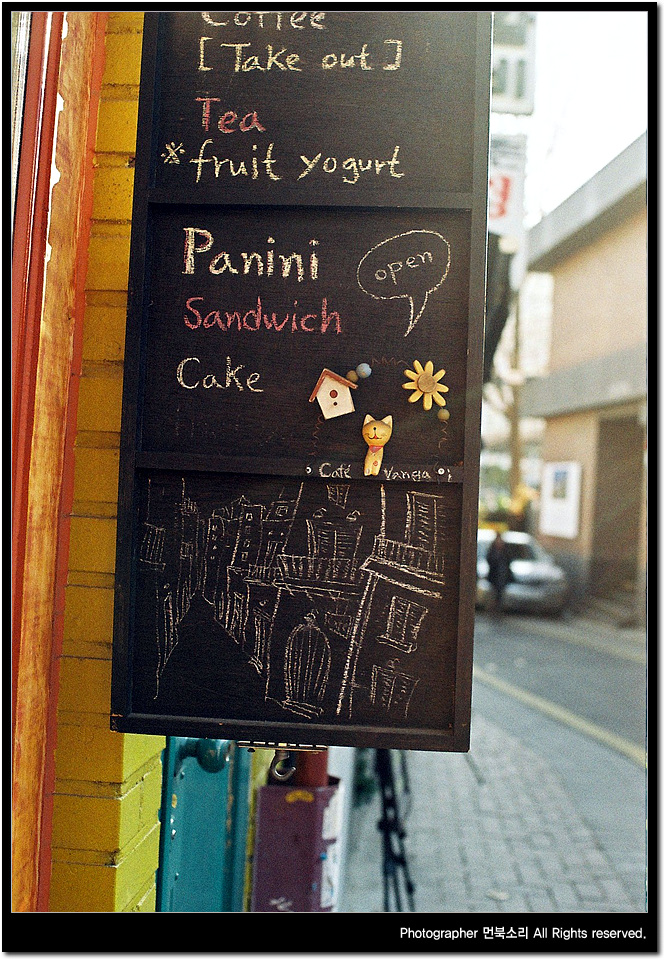 Coffee
[Take out]
Tea
*fruit yogurt
Panini
open
Sandwich
Cake
Café
Photographer 먼북소리 All Rights reserved.